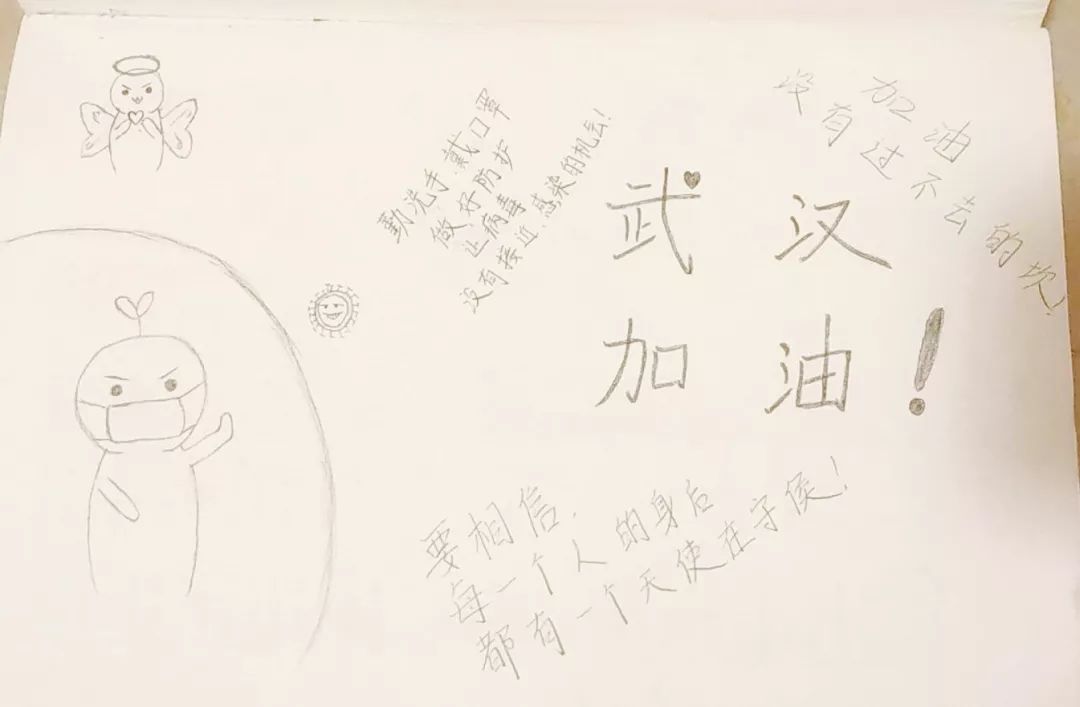 勤洗手 戴口罩
做好防护
让病毒
没有接近、感染的机会!
加油
没有过不去的坎!
武汉
加油!
要相信,
每一个人的身后
都有一个天使在守侯!